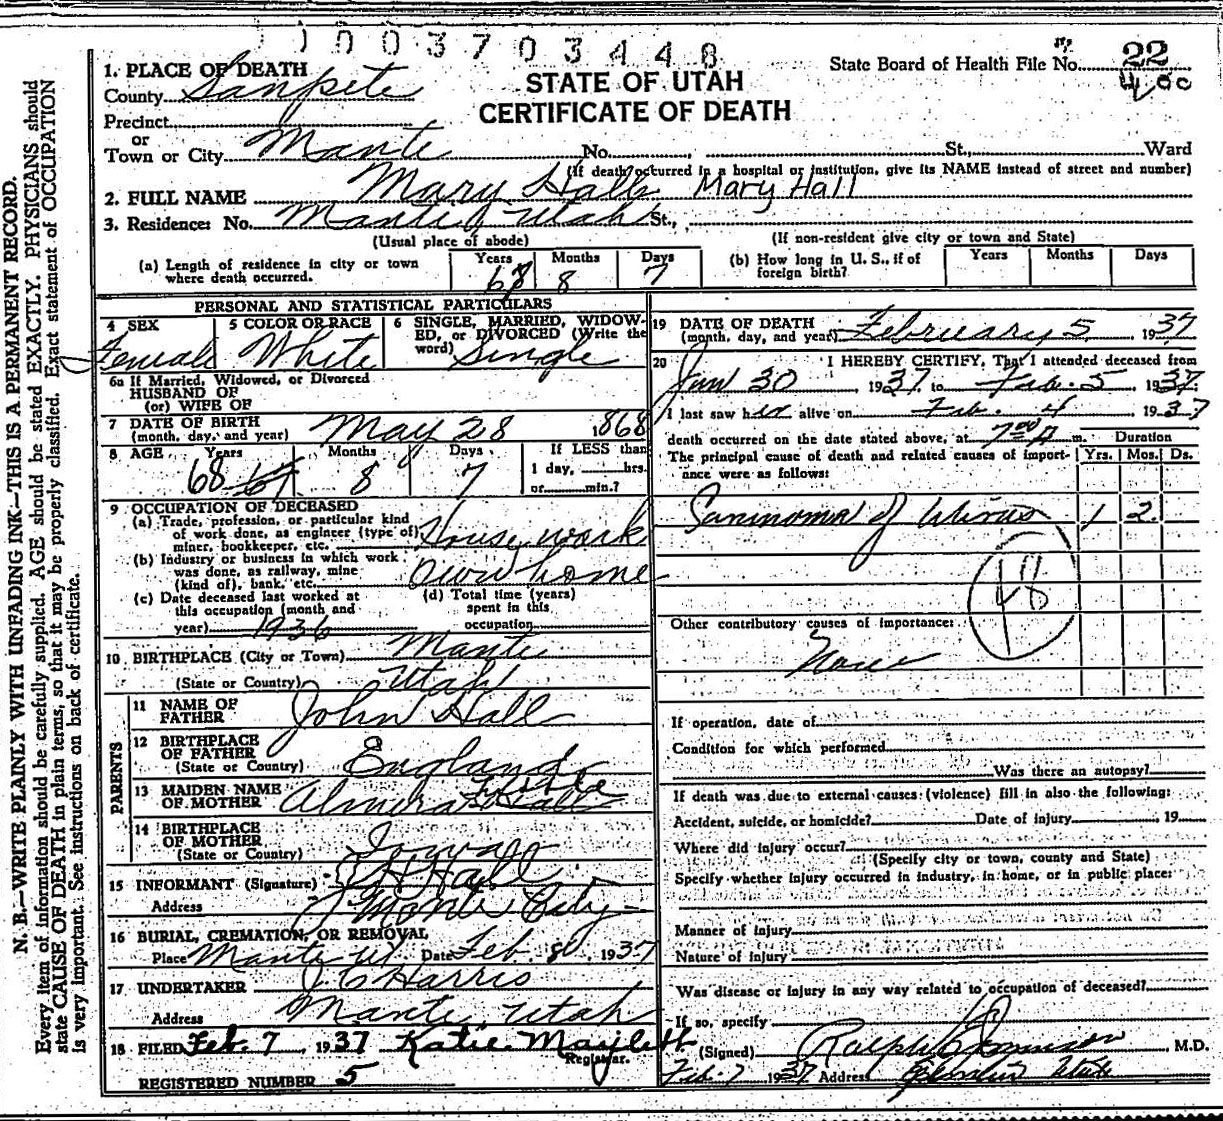 1003703448
1. PLACE OF DEATH
County Sanpete
STATE OF UTAH
CERTIFICATE OF DEATH
State Board of Health File No. 22
Precinct
or
Town or City Manti No. St., Ward
(If death occurred in a hospital or institution, give its NAME instead of street and number)
2. FULL NAME Mary Hall Mary Hall
3. Residence: No. Manti Utah St.,
(Usual place of abode) (If non-resident give city or town and State)
(a) Length of residence in city or town where death occurred. Years 68 Months 8 Days 7
(b) How long in U. S., if of foreign birth? Years Months Days
PERSONAL AND STATISTICAL PARTICULARS
4 SEX Female
5 COLOR OR RACE White
6 SINGLE, MARRIED, WIDOW-
ED, or DIVORCED (Write the
word) Single
6a If Married, Widowed, or Divorced
HUSBAND OF
(or) WIFE OF
7 DATE OF BIRTH
(month, day, and year) May 28 1868
8 AGE Years Months Days If LESS than
68 67 8 7 1 day, hrs.
or min.?
9 OCCUPATION OF DECEASED
(a) Trade, profession, or particular kind
of work done, as engineer (type of)
miner, bookkeeper, etc. House work
(b) Industry or business in which work
was done, as railway, mine
(kind of), bank, etc. own home
(c) Date deceased last worked at
this occupation (month and
year) 1936
(d) Total time (years)
spent in this
occupation
10 BIRTHPLACE (City or Town) Manti
(State or Country) Utah
PARENTS
11 NAME OF
FATHER John Hall
12 BIRTHPLACE
OF FATHER
(State or Country) England
13 MAIDEN NAME
OF MOTHER Almira
14 BIRTHPLACE
OF MOTHER
(State or Country) Iowa
15 INFORMANT (Signature) Hall
Address Manti City
16 BURIAL, CREMATION, OR REMOVAL
Place Manti Ut Date Feb 8, 1937
17 UNDERTAKER J. C Harris
Address Manti, Utah
18 FILED Feb. 7, 1937 Katie
Registrar.
REGISTERED NUMBER 5
19 DATE OF DEATH
(month, day, and year) February 5, 1937
20 I HEREBY CERTIFY, That I attended deceased from
Jan 30, 1937 to Feb. 5, 1937
I last saw her alive on Feb. 4 1937
death occurred on the date stated above, at 7 00 A m. Duration
The principal cause of death and related causes of import-
ance were as follows: Yrs. Mos. Ds.
Carcinoma of Uterus 1 2
48
Other contributory causes of importance:
None
If operation, date of
Condition for which performed
Was there an autopsy?
If death was due to external causes (violence) fill in also the following:
Accident, suicide, or homicide? Date of injury , 19
Where did injury occur?
(Specify city or town, county and State)
Specify whether injury occurred in industry, in home, or in public place:
Manner of injury
Nature of injury
Was disease or injury in any way related to occupation of deceased?
If so, specify
(Signed) Ralph , M.D.
Feb. 7 1937 Address Ephraim Utah
N. B.—WRITE PLAINLY WITH UNFADING INK—THIS IS A PERMANENT RECORD.
Every item of information should be carefully supplied. AGE should be stated EXACTLY. PHYSICIANS should
state CAUSE OF DEATH in plain terms, so that it may be properly classified. Exact statement of OCCUPATION
is very important. See instructions on back of certificate.